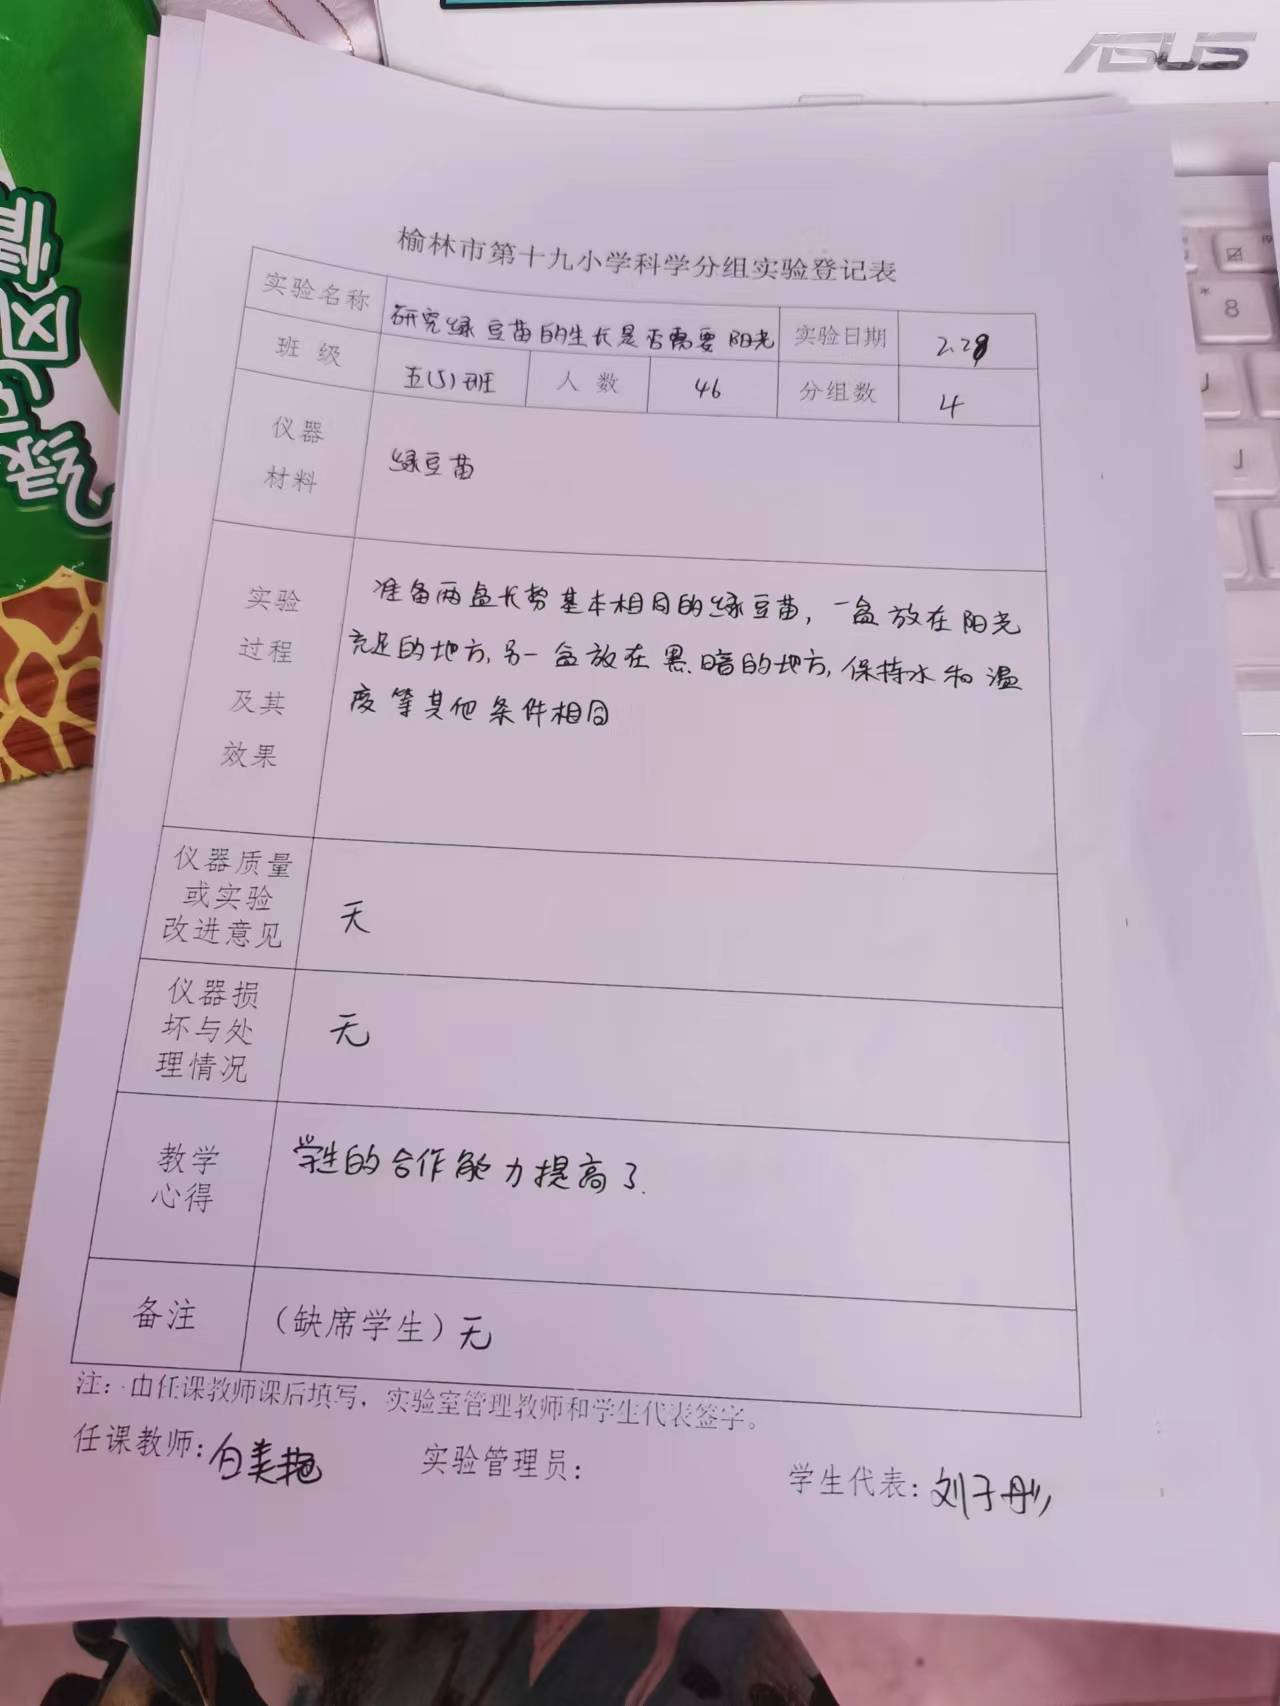 ASUS
榆林市第十九小学科学分组实验登记表
实验名称 研究绿豆苗的生长是否需要阳光 实验日期 2.28
班 级 五(5)班 人 数 46 分组数 4
仪器
材料
绿豆苗
实验
过程
及其
效果
准备两盆长势基本相同的绿豆苗，一盆放在阳光
充足的地方，另一盆放在黑暗的地方，保持水和温
度等其他条件相同
仪器质量
或实验
改进意见
无
仪器损
坏与处
理情况
无
教学
心得
学生的合作能力提高了.
备注 （缺席学生）无
注：由任课教师课后填写，实验室管理教师和学生代表签字。
任课教师：白美艳 实验管理员： 学生代表：刘子彤
8
J